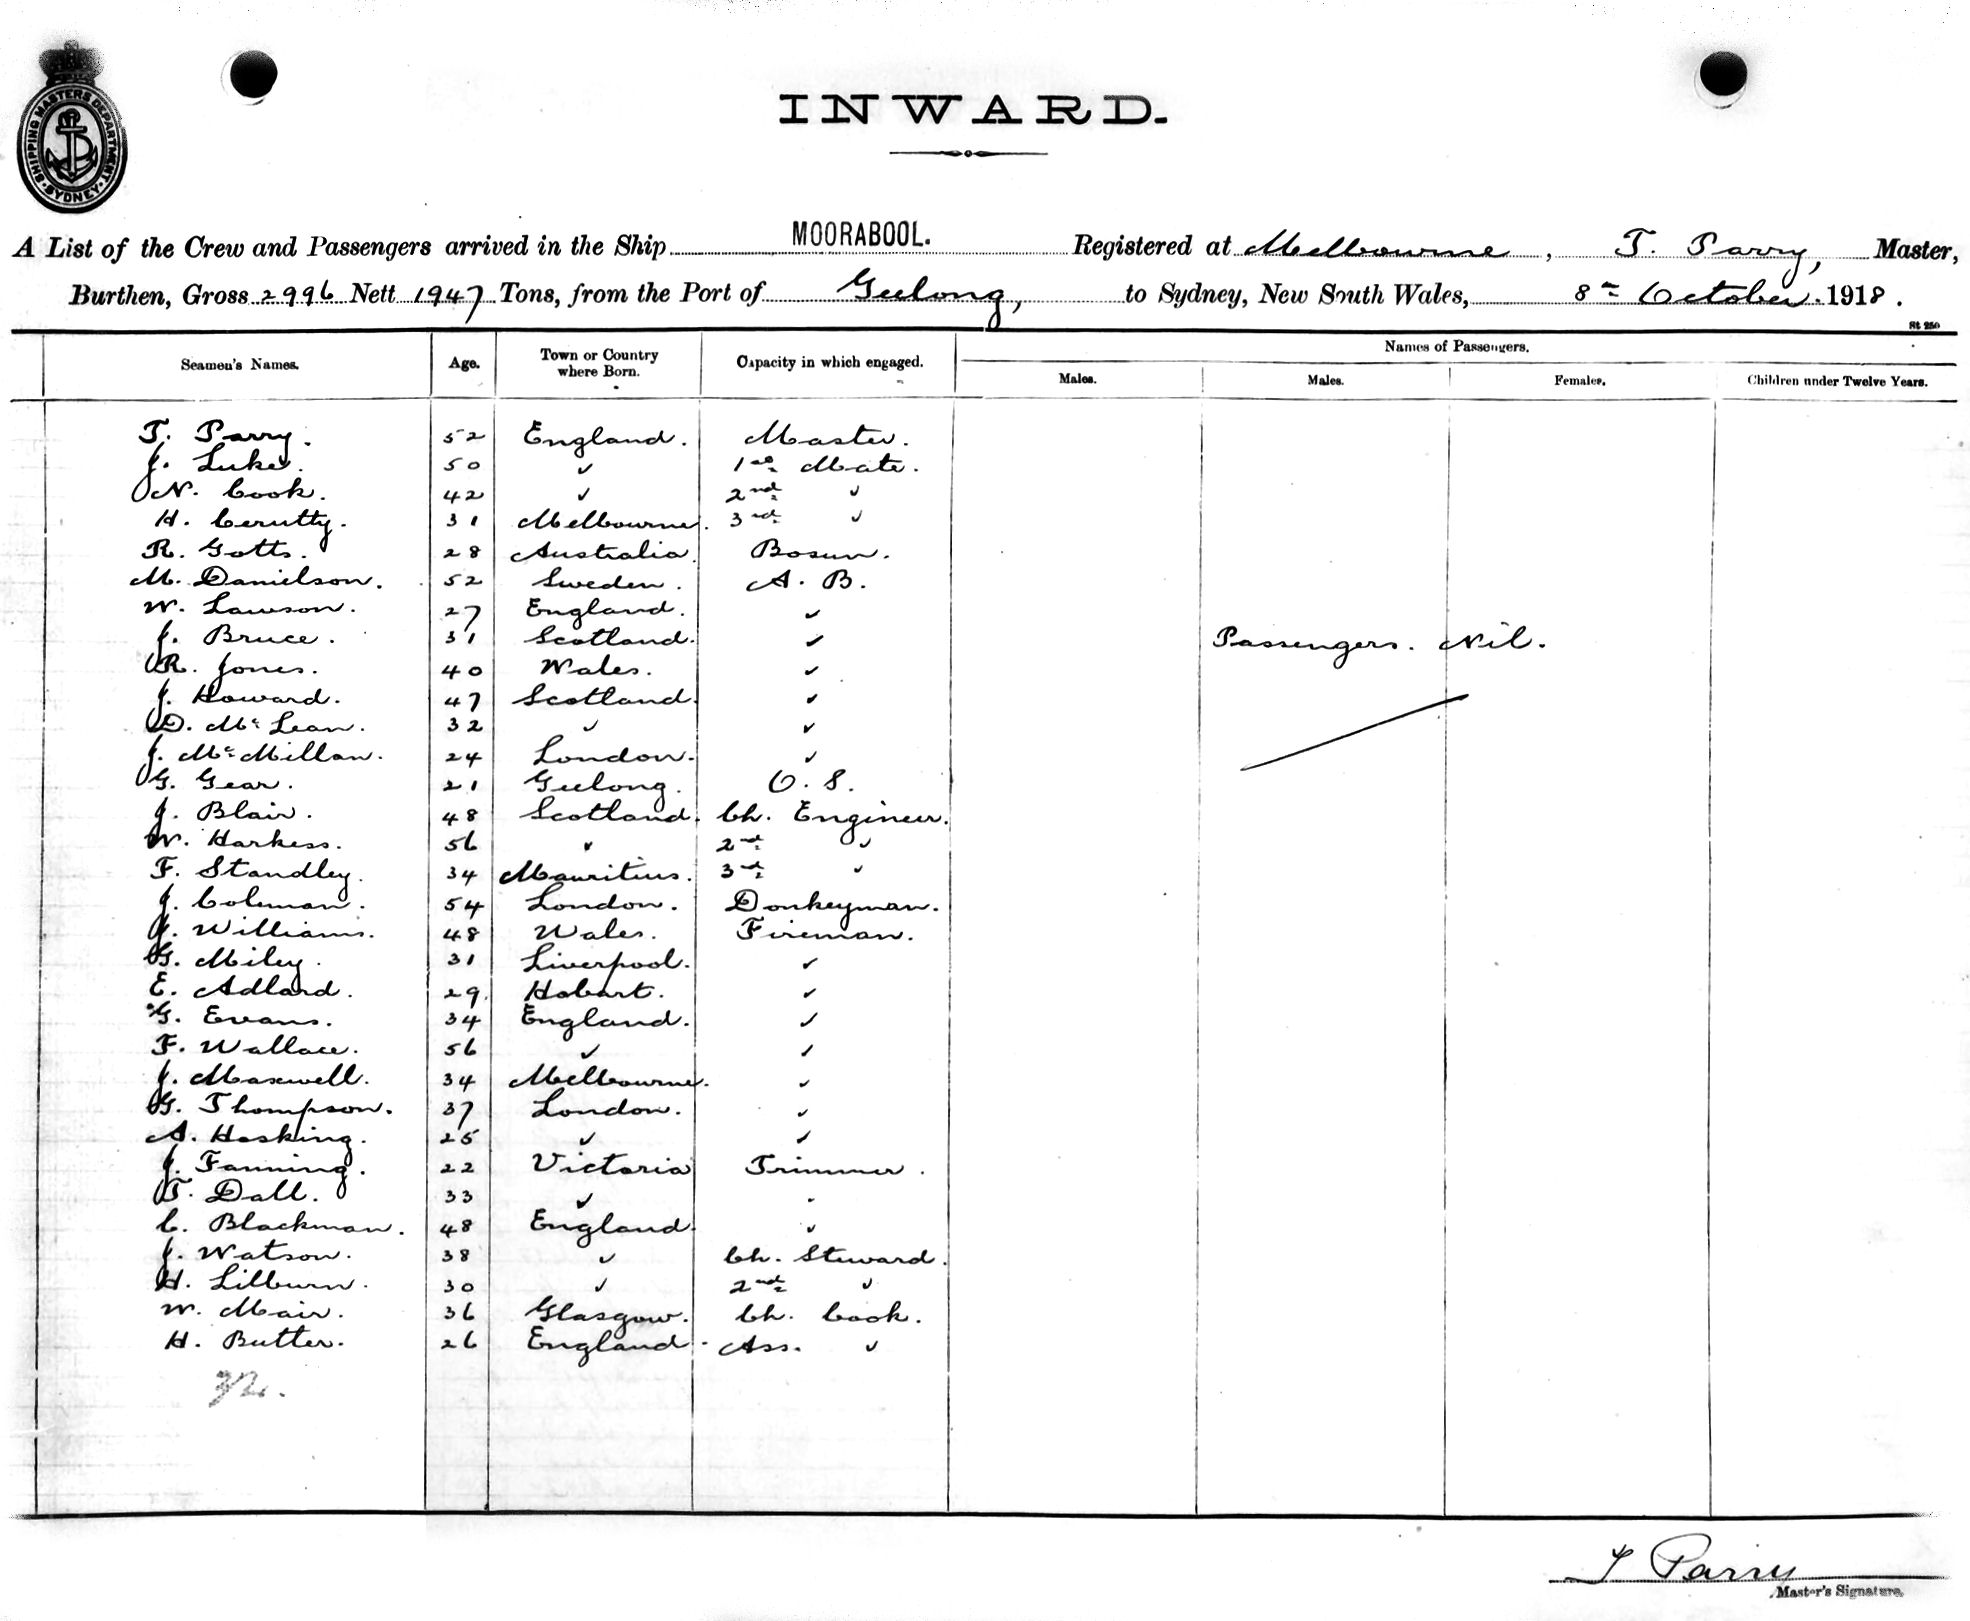 SHIPPING MASTERS DEPARTMENT. SYDNEY
INWARD.
A List of the Crew and Passengers arrived in the Ship MOORABOOL. Registered at Melbourne, T. Parry, Master,
Burthen, Gross 2996 Nett 1947 Tons, from the Port of Geelong, to Sydney, New South Wales, 8th October. 1918.
St 250
Seamen's Names. Age. Town or Country where Born. Capacity in which engaged. Names of Passengers.
Males. Males. Females. Children under Twelve Years.
T. Parry. 52 England. Master.
J. Luke. 50 ✓ 1st Mate.
N. Cook. 42 ✓ 2nd ✓
H. Cerutty. 31 Melbourne. 3rd ✓
R. Gotts. 28 Australia. Bosun.
M. Danielson. 52 Sweden. A. B.
W. Lawson. 27 England. ✓
J. Bruce. 31 Scotland. ✓ Passengers. Nil.
R. Jones. 40 Wales. ✓
J. Howard. 47 Scotland. ✓
D. McLean. 32 ✓ ✓
J. McMillan. 24 London. ✓
G. Gear. 21 Geelong. O. S.
J. Blair. 48 Scotland. Ch. Engineer.
W. Harkess. 56 ✓ 2nd ✓
F. Standley. 34 Mauritius. 3rd ✓
J. Coleman. 54 London. Donkeyman.
J. Williams. 48 Wales. Fireman.
G. Miley. 31 Liverpool. ✓
E. Adlard. 29. Hobart. ✓
G. Evans. 34 England. ✓
F. Wallace. 56 ✓ ✓
J. Maxwell. 34 Melbourne. ✓
G. Thompson. 37 London. ✓
A. Hosking. 25 ✓ ✓
J. Fanning. 22 Victoria Trimmer.
T. Dall. 33 ✓ ✓
C. Blackman. 48 England. ✓
J. Watson. 38 ✓ Ch. Steward.
H. Lilburn. 30 ✓ 2nd ✓
W. Mair. 36 Glasgow. Ch. Cook.
H. Butter. 26 England. Ass. ✓
32.
T Parry
Master's Signature.